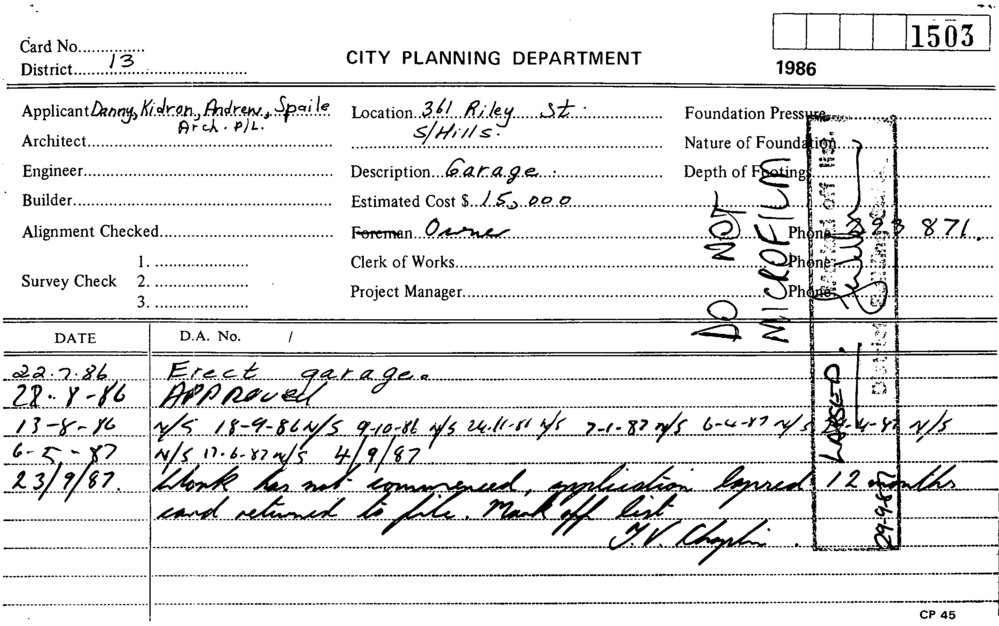 1503
Card No...............
District......13......
CITY PLANNING DEPARTMENT
1986
Applicant Danny, Kidron, Andrew, Spaile
Arch. P/L.
Location 361 Riley St.
S/Hills.
Foundation Pressure
Architect
Nature of Foundation
Engineer
Description Garage.
Depth of Footing
Builder
Estimated Cost $ 15,000
Alignment Checked
Foreman Owner
Phone 223 871.
Survey Check
1.
2.
3.
Clerk of Works
Phone
Project Manager
Phone
DO NOT
MICROFILM
Marked off list.
LAPSED.
29-9-87
DATE
D.A. No. /
22.7.86 Erect garage.
28-8-86 APPROVED
13-8-86 N/S 18-9-86 N/S 9-10-86 N/S 24-11-86 N/S 7-1-87 N/S 6-4-87 N/S N/S
6-5-87 N/S 17-6-87 N/S 4/9/87
23/9/87. Work has not commenced, application lapsed 12 months
card returned to file. Mark off list
T.V. Chaplin.
CP 45